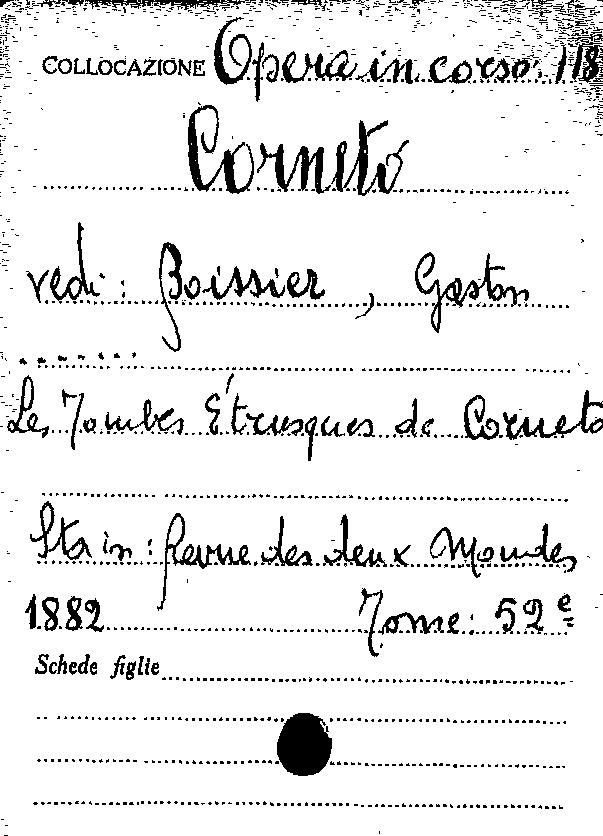 COLLOCAZIONE Opera in corso: 118
Corneto
vedi: Boissier, Gaston
.......
Les Tombes Étrusques de Corneto
Sta in: Revue des deux Mondes
1882 Tome: 52e
Schede figlie